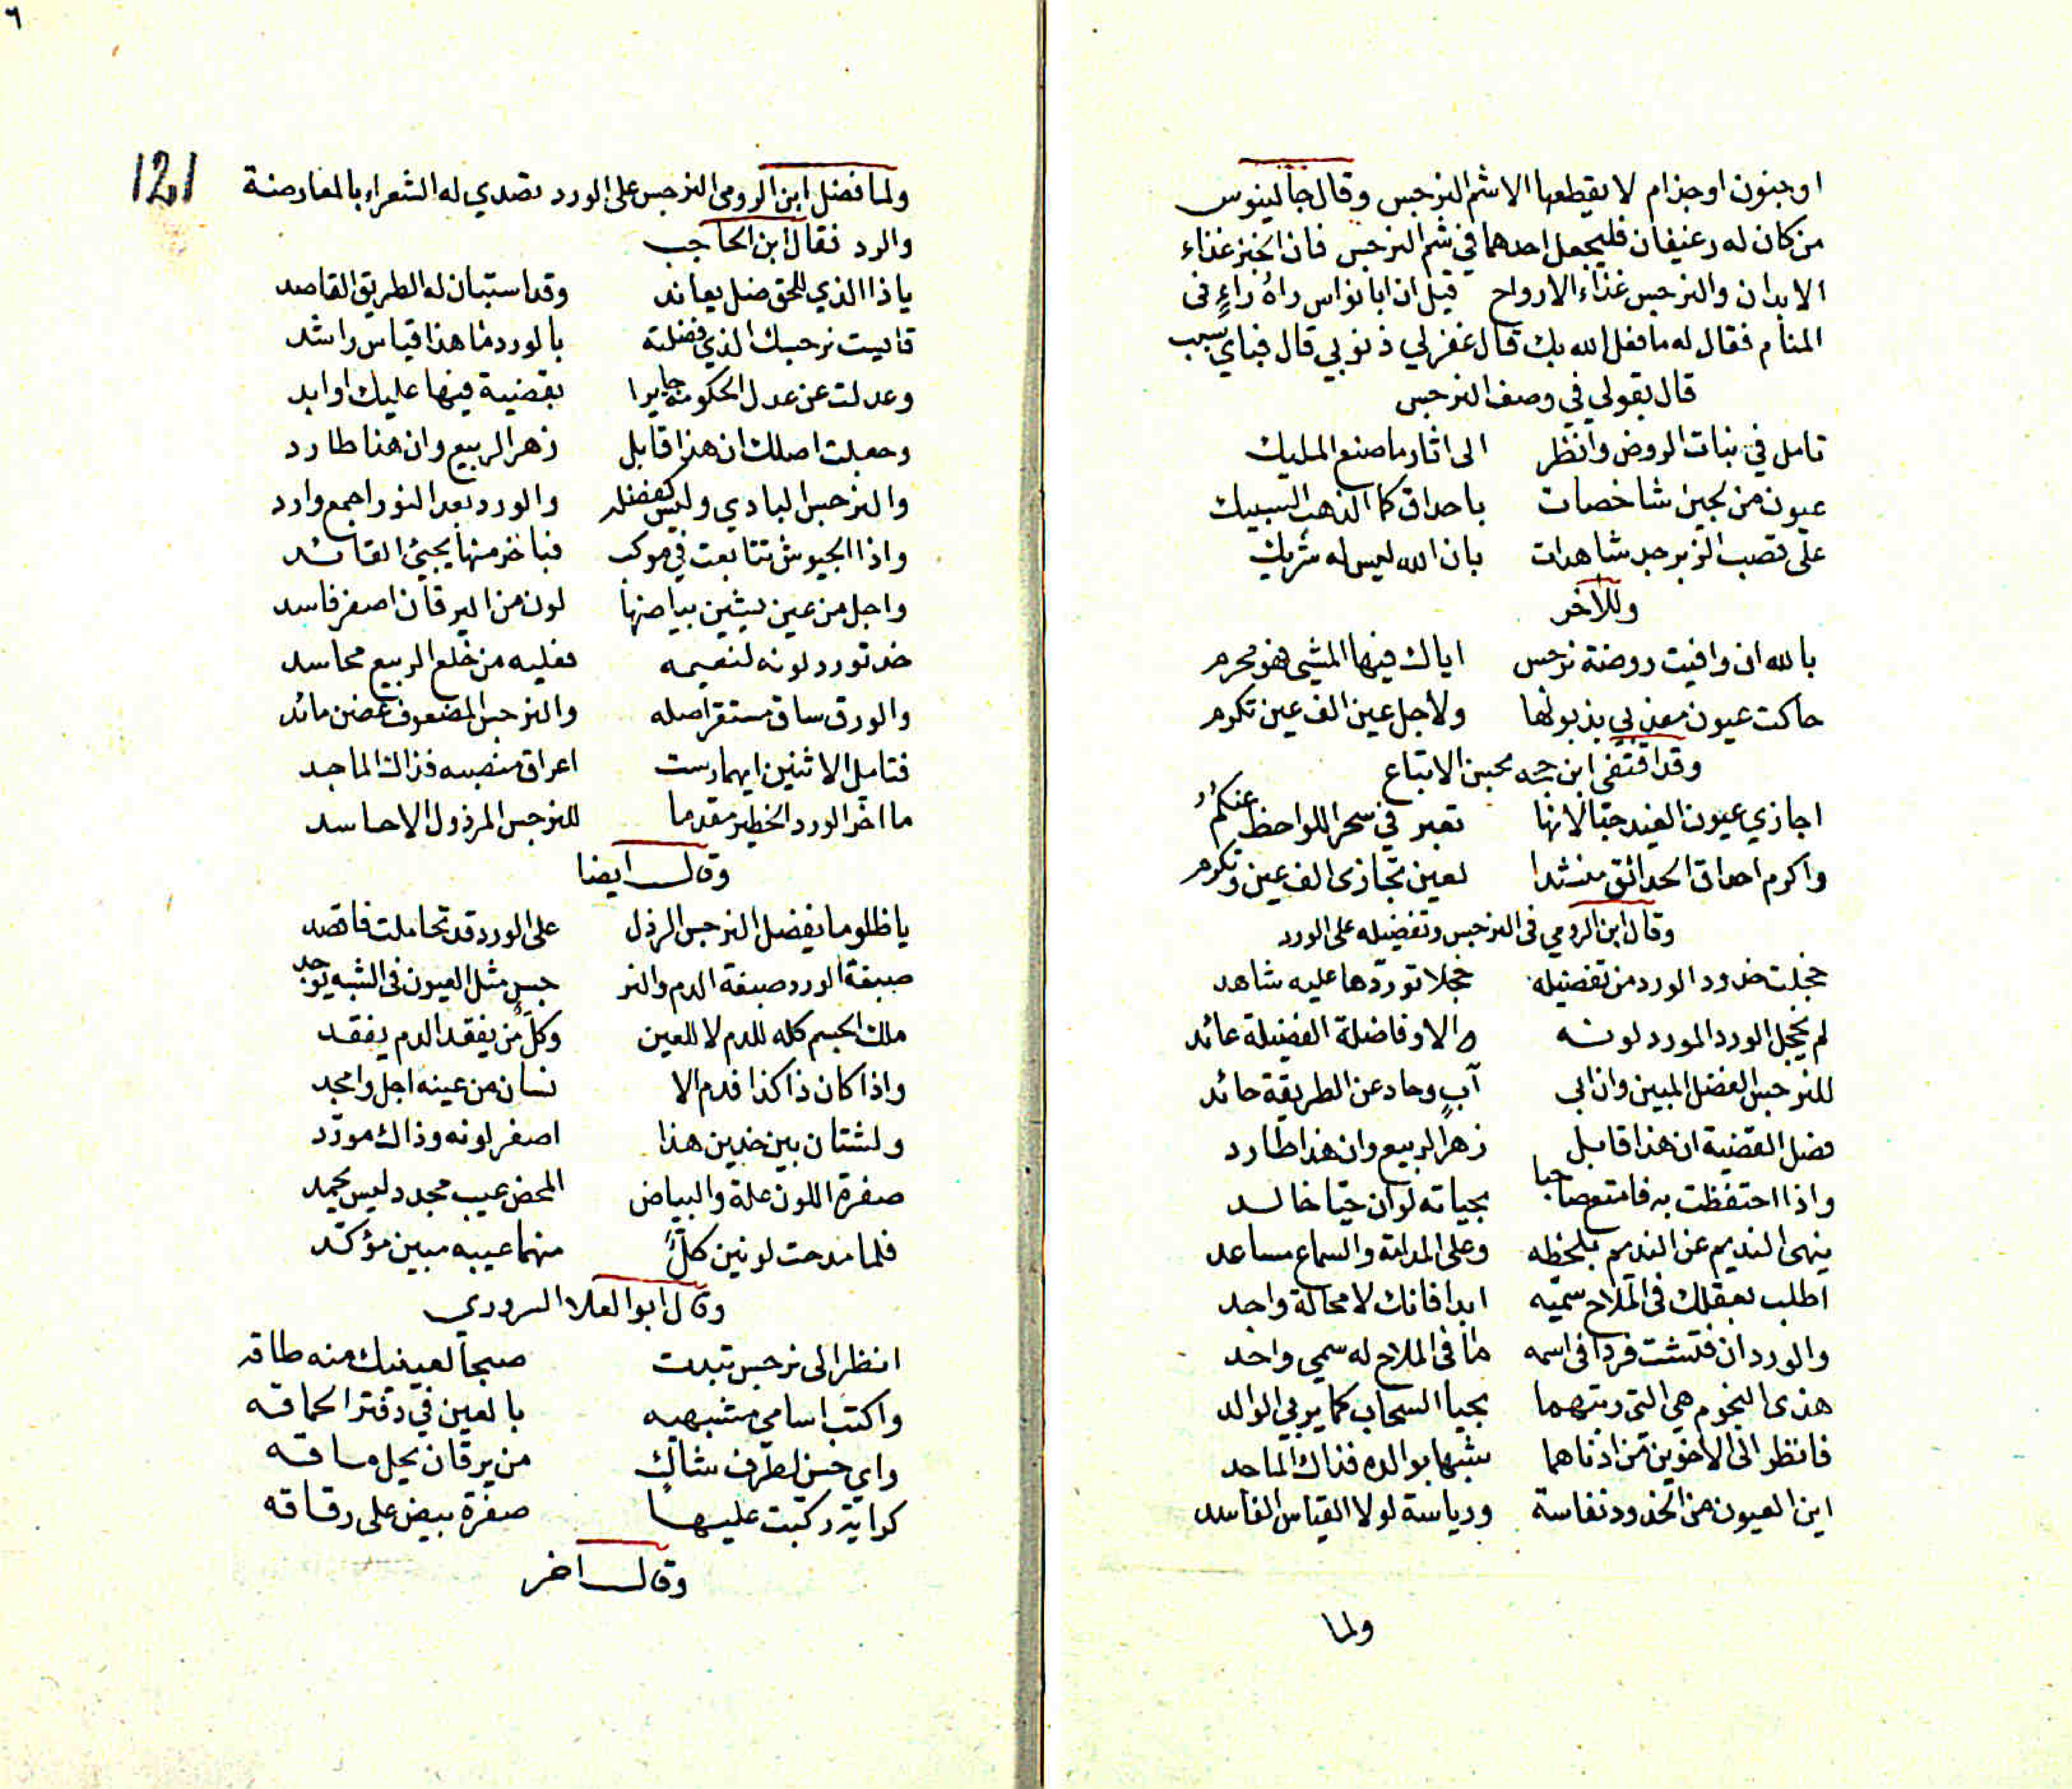 او جنون او جذام لا يقطعها الا شم النرجس وقال جالينوس
من كان له رغيفان فليجعل احدهما في شم النرجس فان الخبز غذاء
الابدان والنرجس غذاء الارواح قيل ان ابا نواس راه راءٍ فى
المنام فقال له ما فعل الله بك قال غفر لي ذنوبي قال فباي سبب
قال بقولي في وصف النرجس
تامل في نبات الروض وانظر الى اثار ما صنع المليك
عيون من لجين شاخصات باحداق كما الذهب السبيك
على قصب الزبرجد شاهدات بان الله ليس له شريك
وللآخر
بالله ان وافيت روضة نرجس اياك فيها المشي فهو محرم
حاكت عيون معذبي بذبولها ولاجل عين الف عين تكرم
وقد اقتفى ابن حجه محبن الاتباع
اجازي عيون الغيد حبّا لانها تعبر في سحر اللواحظ عنكم
واكرم احداق الحدائق منشدا لعين تجازى الف عين وتكرم
وقال ابن الرومي فى النرجس وتفضيله على الورد
خجلت خدود الورد من تفضيله خجلا تورّدها عليه شاهد
لم يخجل الورد المورد لونه الا وفاضلة الفضيلة عائد
للنرجس الفضل المبين وان ابى آبٍ وحاد عن الطريقة حائد
فضل القضية ان هذا قابل زهر الربيع وان هذا طارد
واذا احتفظت به فامتع صاحبا بحياته لو ان حيّا خالد
ينهى النديم عن النديم بلحظه وعلى المدامة والسماع مساعد
اطلب بعقلك فى الملاح سميّه ابدا فانك لا محالة واجد
والورد ان فتشت فردا فى اسمه ما فى الملاح له سمي واحد
هذى النجوم هي التي ربتهما بحيا السحاب كما يربي الوالد
فانظر الى الاخوين من ادناهما شبها بوالده فذاك الماجد
اين العيون من الخدود نفاسة ورياسة لولا القياس الفاسد
ولما
٦
121
ولما فضل ابن الرومى النرجس على الورد تصدي له الشعراء بالمعارضة
والرد فقال ابن الحاجب
يا ذا الذي للحق ضل يعاند وقد استبان له الطريق القاصد
قايست نرجسك الذي فضلته بالورد ما هذا قياس راشد
وعدلت عن عدل الحكومة جايرا بقضية فيها عليك اوابد
وجعلت اصلك ان هذا قابل زهر الربيع وان هنا طارد
والنرجس البادي وليس كفضله والورد بعد النور اجمع وارد
واذا الجيوش تتابعت في موكب فباخر منها يجيئ القائد
واجل من عين يشين بياضها لون من اليرقان اصفر فاسد
خد تورد لونه لنعيمه فعليه من خلع الربيع محاسد
والورق ساق مستقر اصله والنرجس المضعوف غصن مائد
فتامل الاثنين ايهما رست اعراق منصبه فذاك الماجد
ما اخر الورد الخطير مقدما للنرجس المرذول الا حاسد
وقال ايضا
يا ظلوما يفضل النرجس الرذل على الورد قد تحاملت فاقصد
صبغة الورد صبغة الدم والنر جس مثل العيون فى الشبه يوجد
ملك الجسم كله للدم لا للعين وكل من يفقد الدم يفقد
واذا كان ذا كذا فدم الا نسان من عينه اجل وامجد
ولشتان بين خدين هذا اصفر لونه وذاك مورّد
صفرة اللون علة والبياض المحض عيب مجدد ليس يحمد
فلما مدحت لونين كلٌّ منهما عيبه مبين مؤكّد
وقال ابو العلا السروري
انظر الى نرجس تبدت صبحا لعينيك منه طاقه
واكتب اسامي مشبهيه بالعين في دفتر الحماقه
واي حسن لطرف شاكٍ من يرقان يحل ماقه
كراية ركبت عليها صفرة بيض على رقاقه
وقال اخر